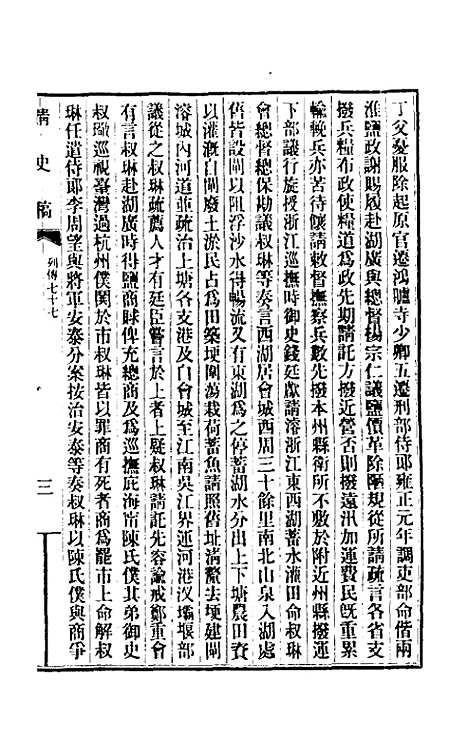 丁父憂服除起原官遷鴻臚寺少卿五遷刑部侍郎雍正元年調吏部命偕兩
淮鹽政謝賜履赴湖廣與總督楊宗仁議鹽價革除陋規從所請疏言各省支
撥兵糧布政使糧道為政先期請託方撥近營否則撥遠汛加運費民旣重累
輸輓兵亦苦待饟請敕督撫察兵數先撥本州縣衞所不敷於附近州縣撥運
下部議行旋授浙江巡撫時御史錢廷獻請濬浙江東西湖蓄水灌田命叔琳
會總督滿保勘議叔琳等奏言西湖居會城西周三十餘里南北山泉入湖處
舊皆設閘以阻浮沙水得暢流又有東湖為之停蓄湖水分出上下塘農田資
以灌漑自閘廢土淤民占為田築埂圍蕩栽荷蓄魚請照舊址清釐去埂建閘
濬城內河道並疏治上塘各支港及自會城至江南吳江界運河港汊壩堰部
議從之叔琳疏薦人才有廷臣嘗言於上者上疑叔琳請託先容諭戒鄭重會
有言叔琳赴湖廣時得鹽商賕俾充總商及為巡撫庇海甯陳氏僕其弟御史
叔璥巡視臺灣過杭州僕鬨於市叔琳皆以罪商有死者商為罷市上命解叔
琳任遣侍郎李周望與將軍安泰分案按治安泰等奏叔琳以陳氏僕與商爭
清史稿
列傳七十七
三